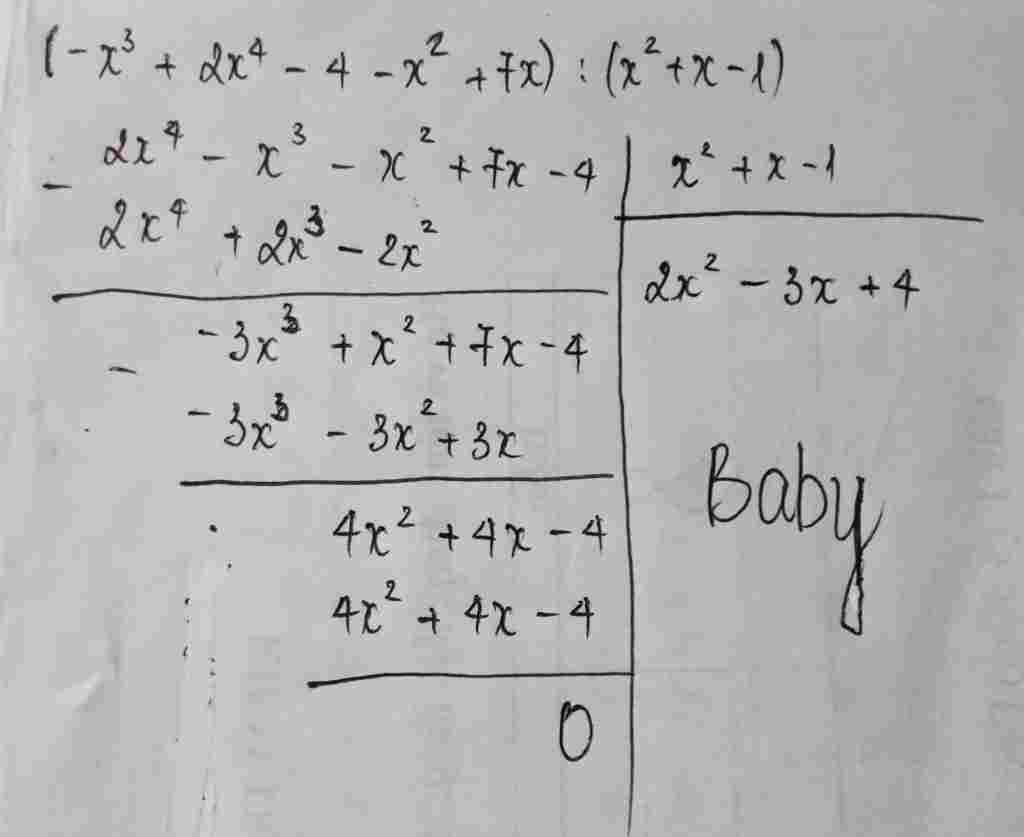 (-x³ + 2x⁴ - 4 - x² + 7x) : (x² + x - 1)
- 2x⁴ - x³ - x² + 7x - 4 | x² + x - 1
2x⁴ + 2x³ - 2x² | 2x² - 3x + 4
- -3x³ + x² + 7x - 4
-3x³ - 3x² + 3x
4x² + 4x - 4
4x² + 4x - 4
0
Baby